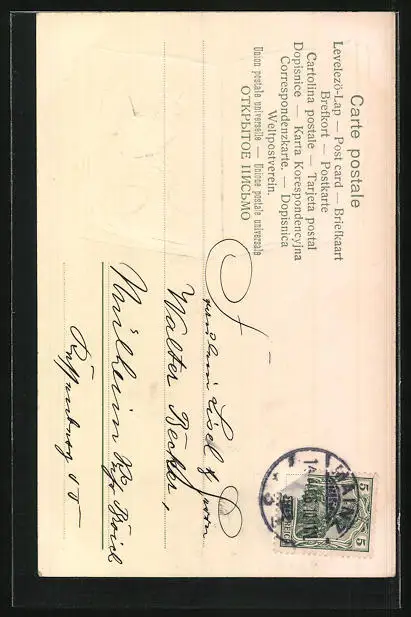 Carte postale
Levelező-Lap — Post card — Briefkaart
Brefkort — Postkarte
Cartolina postale — Tarjeta postal
Dopisnice — Karta Korespondencyjna
Correspondenzkarte. — Dopisnica
Weltpostverein.
Union postale universelle — Unione postale universale
ОТКРЫТОЕ ПИСЬМО
Fräulein Lisel &
Walter Becker,
Mülheim
5 5
MAINZ